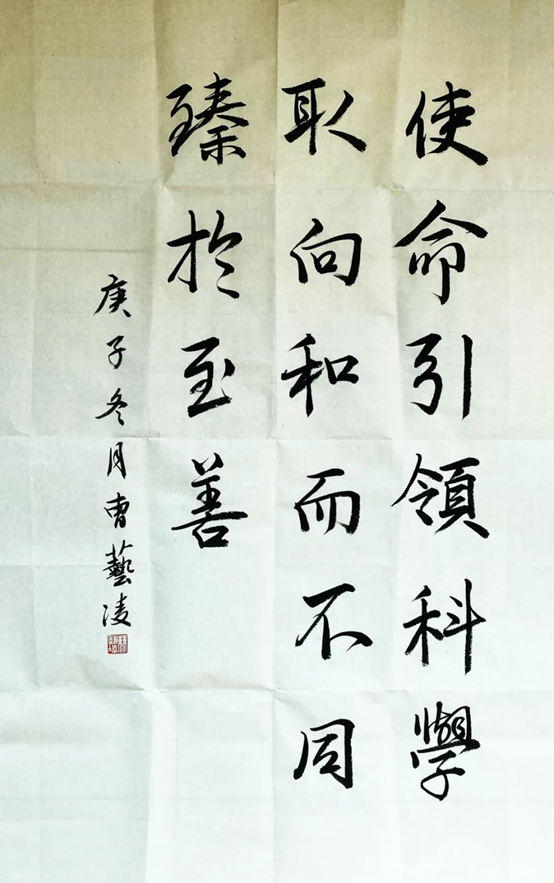 使命引領科學
取向和而不同
臻於至善
庚子冬月曹藝凌